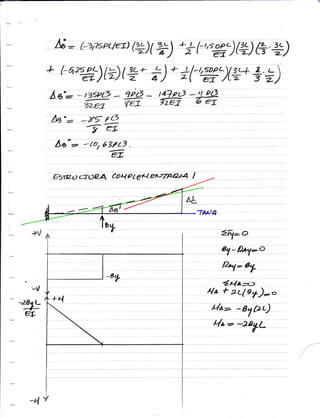 Δo = (-3,75PL/EI)(3L/2)(3L/4) + 1/2(-1,50PL/EI)(3L/2)(2/3·3L/2)
+ (-5,25PL/EI)(L/2)(3L/2 + L/4) + 1/2(-1,50PL/EI)(L/2)(3L/2 + 2/3·L/2)
Δo = -135PL3/32EI - 9PL3/8EI - 147PL3/32EI - 11PL3/6EI
Δo = -85PL3/8EI
Δo = -10,63PL3/EI
ESTRUCTURA COMPLEMENTARIA /
Δo'
ΔL
TANA
By
+V
ΣFy=0
By-RAy=0
RAy=By
-By
-V
ΣMA=0
MA+2L(By)=0
MA=-By(2L)
MA=-2ByL
+M
-2ByL/EI
-M